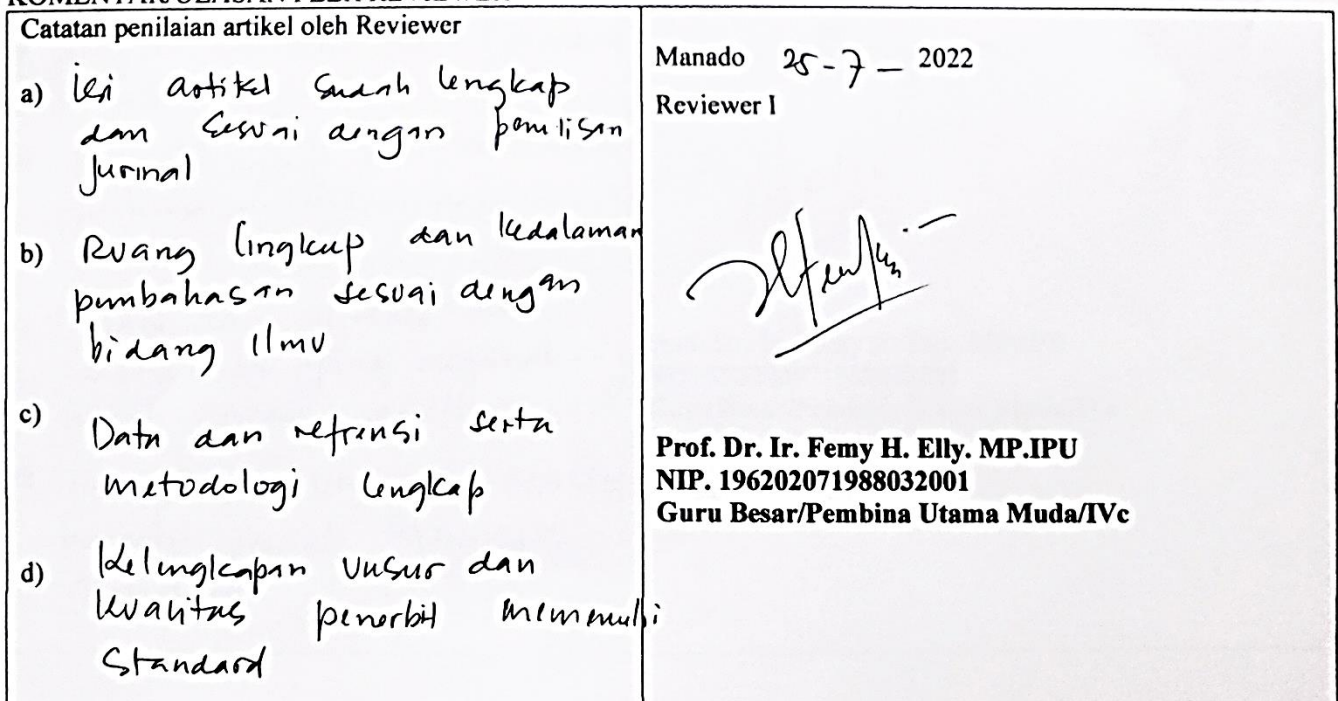 Catatan penilaian artikel oleh Reviewer
a) isi artikel sudah lengkap
dan sesuai dengan penulisan
Jurnal
b) Ruang lingkup dan kedalaman
pembahasan sesuai dengan
bidang Ilmu
c) Data dan refrensi serta
metodologi lengkap
d) Kelengkapan unsur dan
kualitas penerbit memenuhi
Standard
Manado 25-7-2022
Reviewer I
Prof. Dr. Ir. Femy H. Elly. MP.IPU
NIP. 196202071988032001
Guru Besar/Pembina Utama Muda/IVc